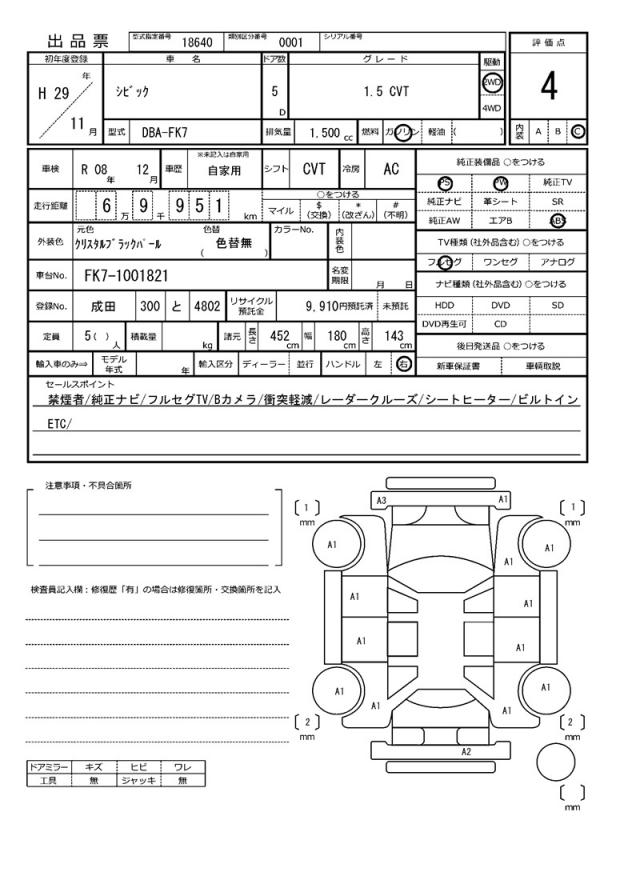 出品票 型式指定番号 18640 類別区分番号 0001 シリアル番号
評価点
4
内装 A B C
初年度登録 車名 ドア数 グレード 駆動
H 29 年 11 月 シビック 5 D 1.5 CVT 2WD 4WD
型式 DBA-FK7 排気量 1.500 cc 燃料 ガソリン 軽油 ( )
車検 R 08 年 12 月 車歴 ※未記入は自家用 自家用 シフト CVT 冷房 AC
走行距離 6 万 9 千 9 5 1 km
○をつける
マイル $ (交換) * (改ざん) # (不明)
外装色 元色 クリスタルブラックパール 色替 ( 色替無 ) カラーNo. 内装色
車台No. FK7-1001821 名変期限 月 日
登録No. 成田 300 と 4802 リサイクル預託金 9,910円預託済 未預託
定員 5( ) 人 積載量 kg 諸元 長さ 452 cm 幅 180 cm 高さ 143 cm
輸入車のみ⇒ モデル年式 年 輸入区分 ディーラー 並行 ハンドル 左 右
純正装備品 ○をつける
PS PW 純正TV
純正ナビ 革シート SR
純正AW エアB ABS
TV種類 (社外品含む) ○をつける
フルセグ ワンセグ アナログ
ナビ種類 (社外品含む) ○をつける
HDD DVD SD
DVD再生可 CD
後日発送品 ○をつける
新車保証書 車輌取説
セールスポイント
禁煙者/純正ナビ/フルセグTV/Bカメラ/衝突軽減/レーダークルーズ/シートヒーター/ビルトイン
ETC/
注意事項・不具合箇所
検査員記入欄：修復歴「有」の場合は修復箇所・交換箇所を記入
ドアミラー キズ ヒビ ワレ
工具 無 ジャッキ 無
A3 A1
1 mm 1 mm
A1 A1 A1
A1 A1
A1 A1
A1 A1
A1 A1
2 mm 2 mm
A2
mm